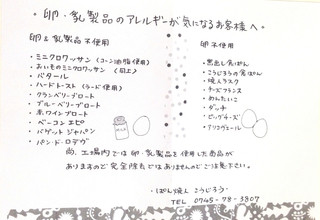 ・卵・乳製品のアレルギーが気になるお客様へ・
卵&乳製品不使用
・ミニクロワッサン(コーン油脂使用)
・おいものミニクロワッサン(同上)
・バタール
・ハードトースト(ラード使用)
・クランベリーブロート
・ブルーベリーブロート
・赤ワインブロート
・ベーコンエピ
・バゲットジャパン
・パン・ド・ロデヴ
卵不使用
・窯出し食ぱん
・こうじろうの食ぱん
・焼人ラスク
・チーズフランス
・めんたいこ
・ダッチ
・ビッグチーズ
・アリコヴェール
尚、工場内では卵・乳製品を使用した商品が
ありますので完全除去ではありませんのでご注意下さい。
・ぱん焼人 こうじろう・
TEL 0745-78-3807